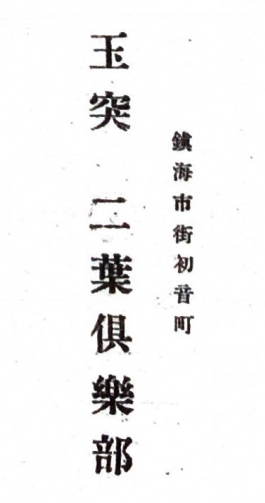 鎭海市街初音町
玉突 二葉俱樂部